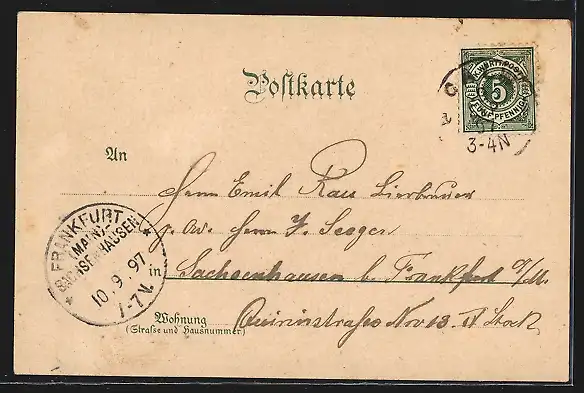 Postkarte
K. WÜRTT. POST
5
FÜNF PFENNIG
3-4N
An
Herrn Emil Rau Bierbrauer
p. Adr. Herrn J. Seeger
in Sachsenhausen b. Frankfurt a/M.
Wohnung Quirinstrasse Nro 13. II Stock
(Straße und Hausnummer)
FRANKFURT
(MAIN)-
SACHSENHAUSEN
10.9.97
-7V.